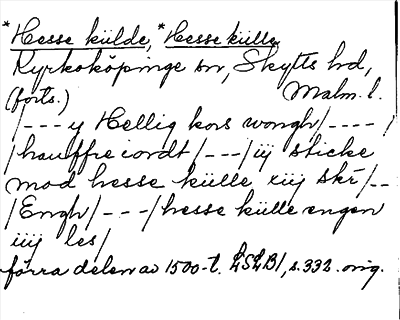 *Hesse külde, *Hesse külle
Kyrkoköpinge sn, Skytts hd,
(forts.) Malm. l.
/--- y Hellig kors wongh/----/
/hauffre iordt/---/iij sticke
mod hesse külle xiij skr/--
/Engh/---/hesse külle engen
iiij les/
förra delen av 1500-t. LSLB1, s. 332. orig.